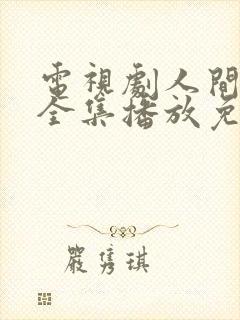 電視劇人間
全集播放免
嚴隽琪